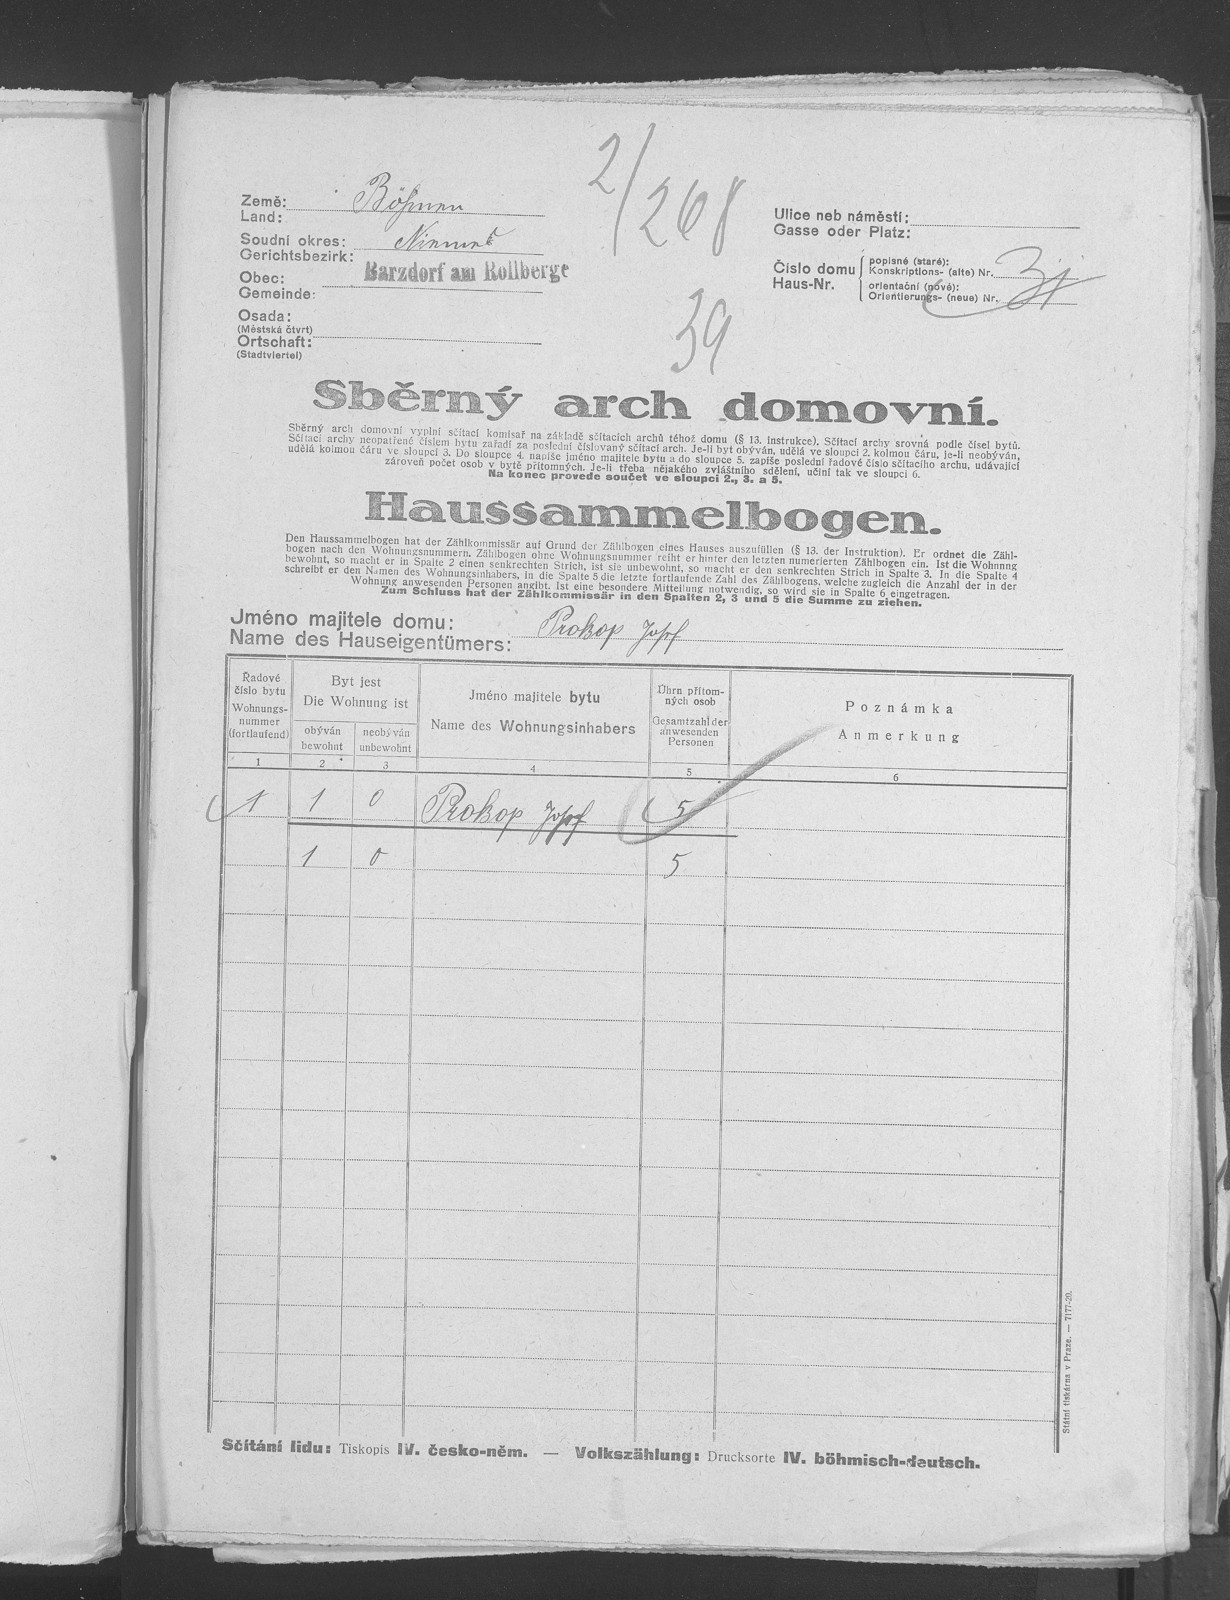 2/268
Země: Böhmen
Land:
Soudní okres: Niemes
Gerichtsbezirk:
Obec: Barzdorf am Rollberge
Gemeinde:
Osada:
(Městská čtvrt)
Ortschaft:
(Stadtviertel)
Ulice neb náměstí:
Gasse oder Platz:
Číslo domu
Haus-Nr.
popisné (staré):
Konskriptions- (alte) Nr.
orientační (nové):
Orientierungs- (neue) Nr.
39
Sběrný arch domovní.
Sběrný arch domovní vyplní sčítací komisař na základě sčítacích archů téhož domu (§ 13. instrukce). Sčítací archy srovná podle čísel bytů.
Sčítací archy neopatřené číslem bytu zařadí za poslední číslovaný sčítací arch. Je-li byt obýván, udělá ve sloupci 2. kolmou čáru, je-li neobýván,
udělá kolmou čáru ve sloupci 3. Do sloupce 4. napíše jméno majitele bytu a do sloupce 5. zapíše poslední řadové číslo sčítacího archu, udávající
zároveň počet osob v bytě přítomných. Je-li třeba nějakého zvláštního sdělení, učiní tak ve sloupci 6.
Na konec provede součet ve sloupci 2., 3. a 5.
Haussammelbogen.
Den Haussammelbogen hat der Zählkommissär auf Grund der Zählbogen eines Hauses auszufüllen (§ 13. der Instruktion). Er ordnet die Zähl-
bogen nach den Wohnungsnummern. Zählbogen ohne Wohnungsnummer reiht er hinter den letzten numerierten Zählbogen ein. Ist die Wohnung
bewohnt, so macht er in Spalte 2 einen senkrechten Strich, ist sie unbewohnt, so macht er den senkrechten Strich in Spalte 3. In die Spalte 4
schreibt er den Namen des Wohnungsinhabers, in die Spalte 5 die letzte fortlaufende Zahl des Zählbogens, welche zugleich die Anzahl der in der
Wohnung anwesenden Personen angibt. Ist eine besondere Mitteilung notwendig, so wird sie in Spalte 6 eingetragen.
Zum Schluss hat der Zählkommissär in den Spalten 2, 3 und 5 die Summe zu ziehen.
Jméno majitele domu: Prokop Josef
Name des Hauseigentümers:
Řadové
číslo bytu
Wohnungs-
nummer
(fortlaufend)
Byt jest
Die Wohnung ist
obýván
bewohnt
neobýván
unbewohnt
Jméno majitele bytu
Name des Wohnungsinhabers
Úhrn přítom-
ných osob
Gesamtzahl der
anwesenden
Personen
Poznámka
Anmerkung
1 2 3 4 5 6
1 1 0 Prokop Josef 5
1 0 5
Státní tiskárna v Praze. — 7177-20.
Sčítání lidu: Tiskopis IV. česko-něm. — Volkszählung: Drucksorte IV. böhmisch-deutsch.